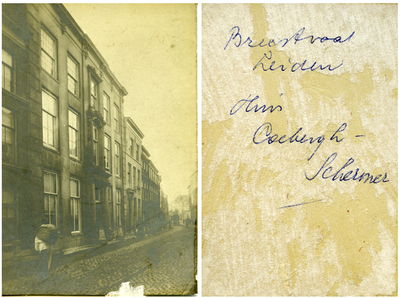 Breestraat
Leiden
Huis
Coebergh-
Schermer